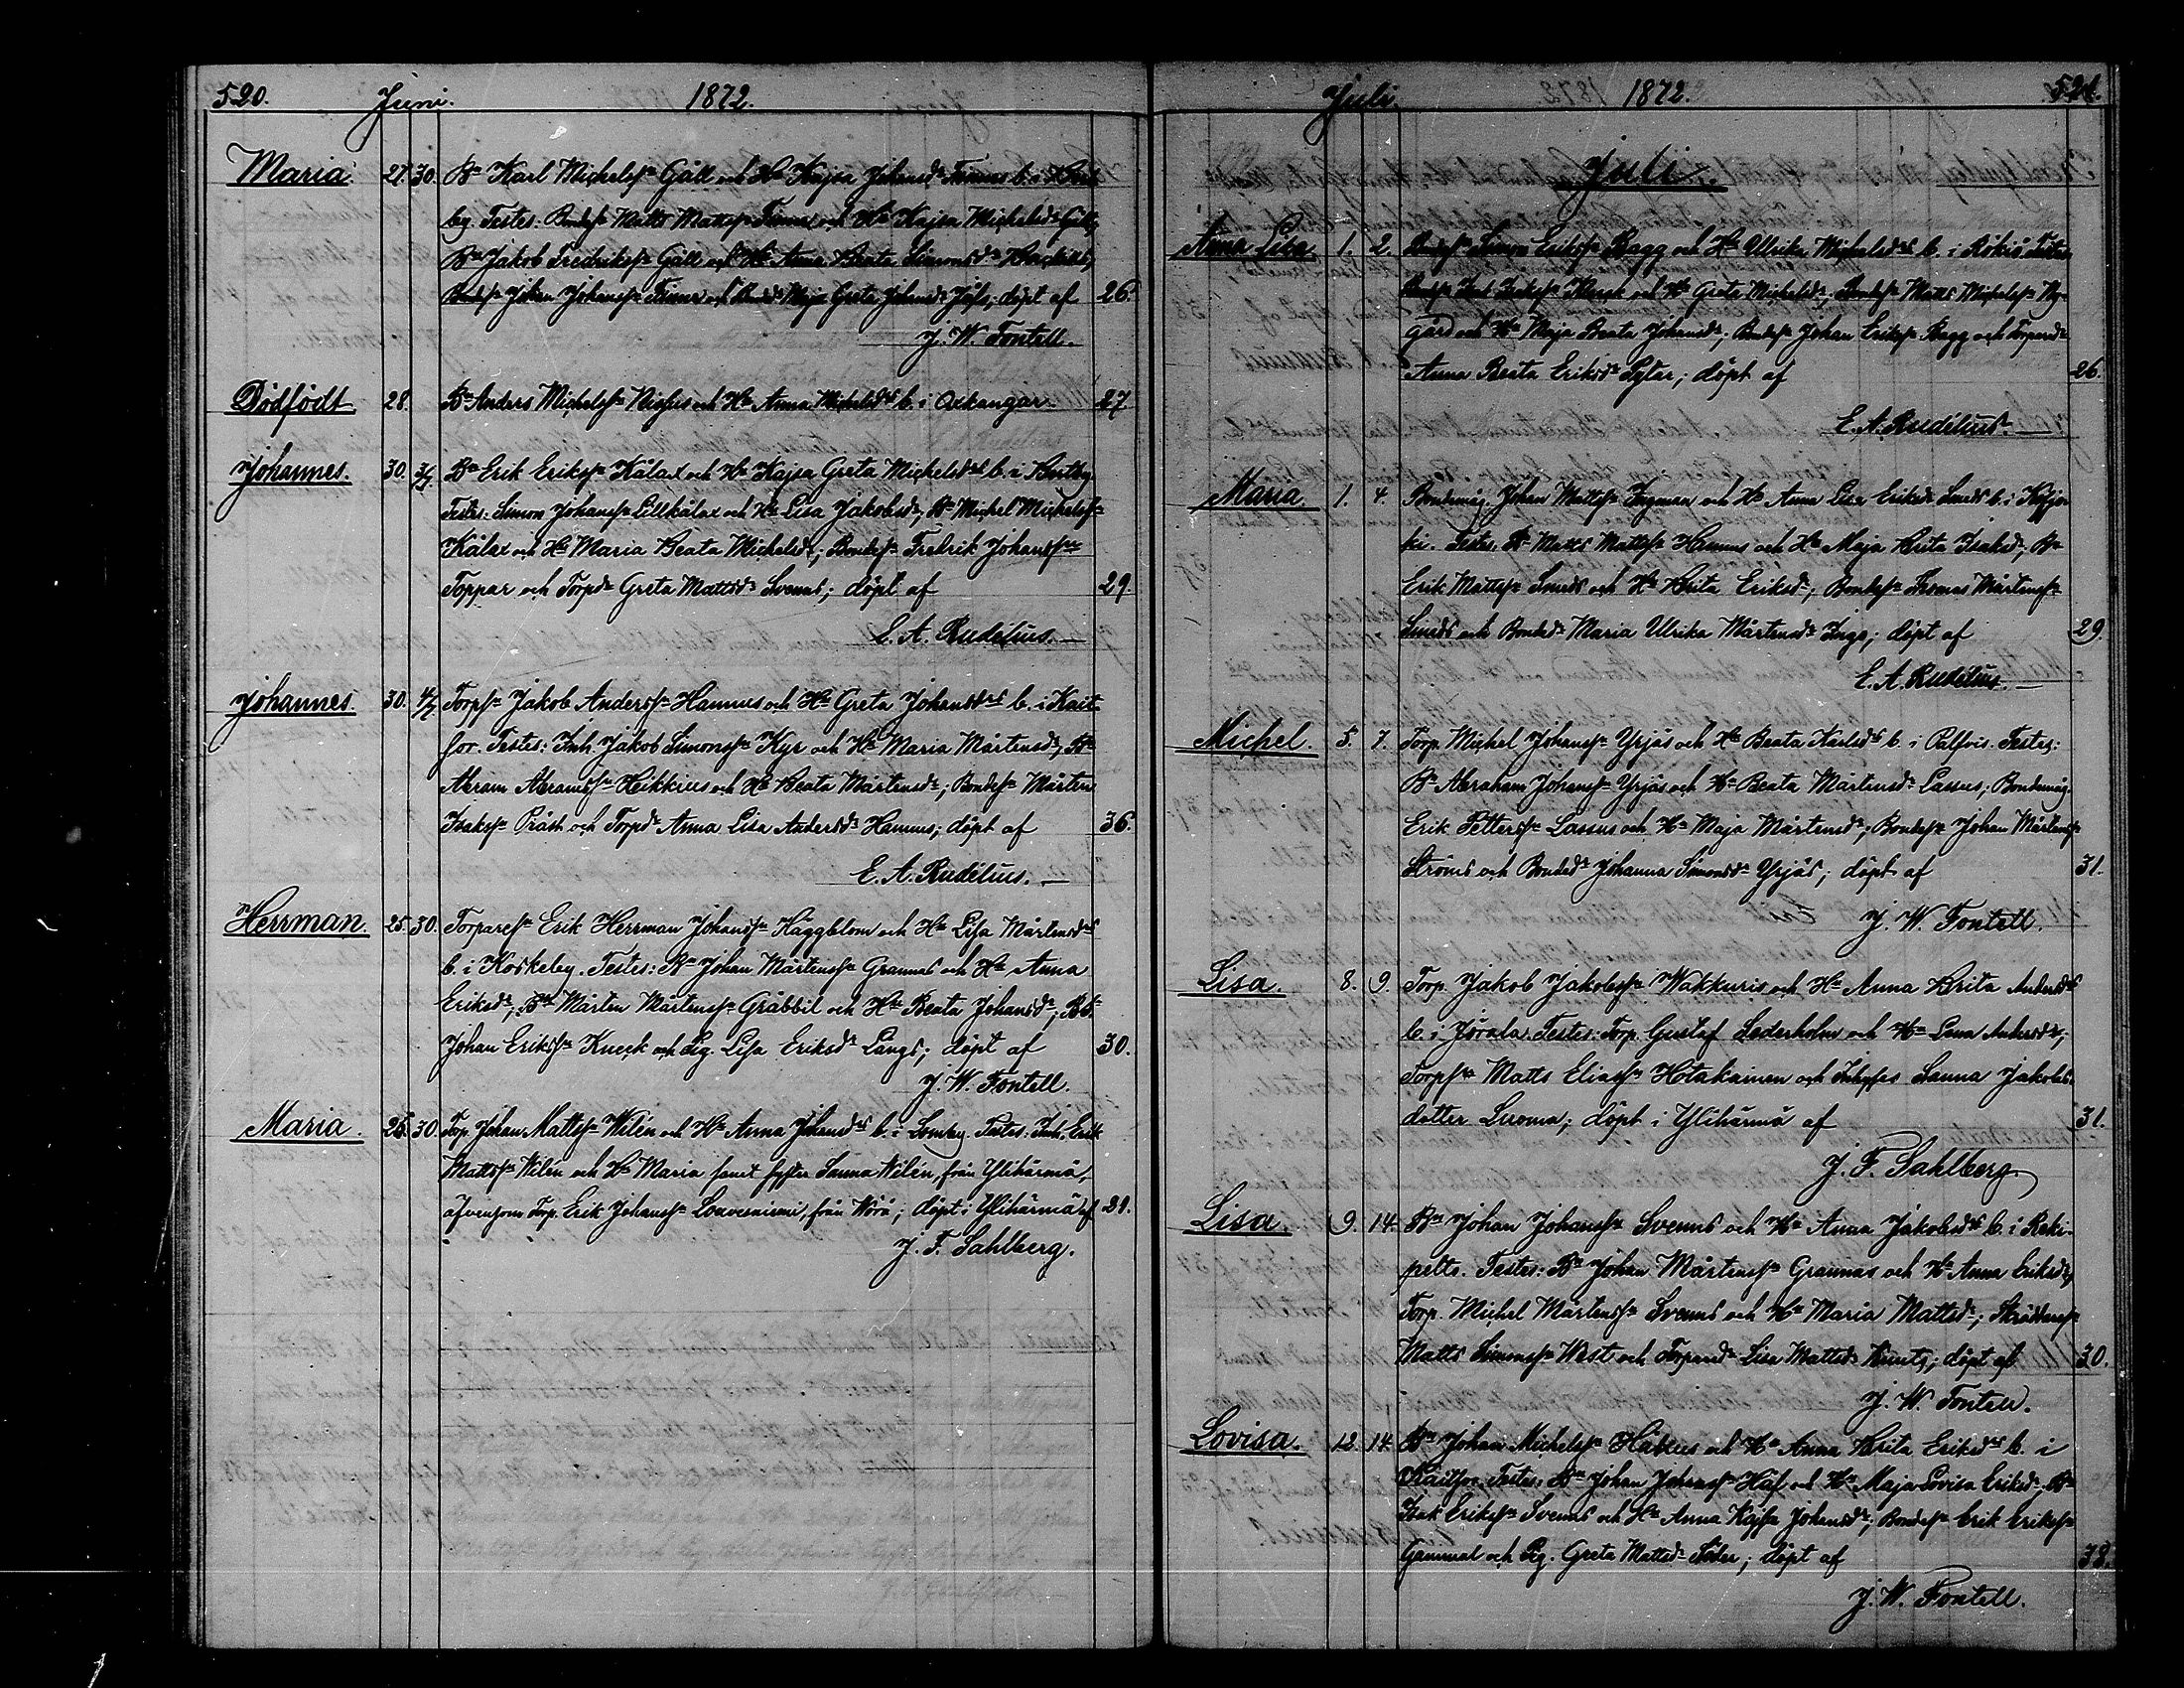 520. Juni. 1872.
Maria. 27. 30. Bn Karl Michelssn Gåll och Hu Kajsa Johansdr Finnus b. i
by. Testes: Bondesn Matts Mattssn Finnus och Hu Kajsa Michelsdr Gåll;
Bn Jakob Fredrikssn Gåll och Hu Anna Beata Simonsdr
Bondesn Johan Johanssn Finnus och Maja Greta Johansdr Jåfs; döpt af 26.
J. W. Fontell.
Dödfödt. 28. Bn Anders Michelssn Nissus och Hu Anna Michelsdrs b. i Oxkangar. 27.
Johannes. 30. 3/7. Bn Erik Erikssn Kålax och Hu Kajsa Greta Michelsdrs b. i
Testes: Simon Johanssn Lillkålax och Hu Lisa Jakobsdr; Bn Michel Michelssn
Kålax och Hu Maria Beata Michelsdr; Bondesn Fredrik Johanssn
Toppar och Torpdr Greta Mattsdr Svenns; döpt af 29.
E. A. Rudelius.
Johannes. 30. 4/7. Torpsn Jakob Anderssn Hannus och Hu Greta Johansdrs b. i Kait-
sor. Testes: Inh. Jakob Simonssn Kyr och Hu Maria Mårtensdr; Bn
Abram Abramssn Heikkius och Hu Beata Mårtensdr; Bondesn Mårten
Isakssn Präst och Torpdr Anna Lisa Andersdr Hannus; döpt af 36.
E. A. Rudelius.
Herrman. 25. 30. Torparesn Erik Herrman Johanssn Häggblom och Hu Lisa Mårtensdrs
b. i Koskeby. Testes: Bn Johan Mårtenssn Grannas och Hu Anna
Eriksdr; Bn Mårten Mårtenssn Gråbbil och Hu Beata Johansdr;
Johan Erikssn Kneck och Pig. Lisa Eriksdr Långs; döpt af 30.
J. W. Fontell.
Maria. 26. 30. Torp. Johan Mattssn Wilén och Hu Anna Johansdrs b. i Lomby. Testes: Inh. Erik
Mattssn Wilén och Hu Maria samt Sanna Wilén, från Ylihärmä,
äfvensom Torp. Erik Johanssn från Wörå; döpt i Ylihärmä af 29.
J. F. Sahlberg.
Juli. 1872. 521.
Juli.
Anna Lisa. 1. 2. Bondesn Simon Erikssn Bagg och Hu Ullrika Michelsdrs b. i Rökiö. Testes:
Bondesn Isakssn och Hu Greta Michelsdr; Bondesn Matts Michelssn Ny-
gård och Hu Maja Beata Johansdr; Bondesn Johan Erikssn Bagg och Torparedr
Anna Beata Eriksdr Sytar; döpt af 26.
E. A. Rudelius.
Maria. 1. 4. Bondemåg Johan Mattssn Ingman och Hu Anna Lisa Eriksdr Smeds b. i
Testes: Bn Matts Mattssn Hannus och Hu Maja Brita Isaksdr; Bn
Erik Mattssn Smeds och Hu Brita Eriksdr; Bondesn Thomas Mårtenssn
Smeds och Bondedr Maria Ulrika Mårtensdr Inga; döpt af 29.
E. A. Rudelius.
Michel. 5. 7. Torp. Michel Johanssn Yrjäs och Hu Beata Karlsdrs b. i Palfvis. Testes:
Bn Abraham Johanssn Yrjäs och Hu Beata Mårtensdr Lassus; Bondemåg.
Erik Petterssn Lassus och Hu Maja Mårtensdr; Bondesn Johan Mårtenssn
Ströms och Bondedr Johanna Simonsdr Yrjäs; döpt af 31.
J. W. Fontell.
Lisa. 8. 9. Torp. Jakob Jakobssn Wakkuris och Hu Anna Brita Andersdrs
b. i Jörala. Testes: Torp. Gustaf Sederholm och Hu Lena Andersdr;
Torpsn Matts Eliassn Hotakainen och Inhyses Sanna Jakobs-
dotter Luoma; döpt i Ylihärmä af 31.
J. F. Sahlberg.
Lisa. 9. 14. Bn Johan Johanssn Svenns och Hu Anna Jakobsdrs b. i Reki-
pelto. Testes: Bn Johan Mårtenssn Grannas och Hu Anna Eriksdr;
Torp. Michel Mårtenssn Svenns och Hu Maria Mattsdr; Skräddaresn
Matts Simonssn West och Torparedr Lisa Mattsdr Knuts; döpt af 30.
J. W. Fontell.
Lovisa. 12. 14. Bn Johan Michelssn och Hu Anna Brita Eriksdrs b. i
Kaitsor. Testes: Bn Johan Johanssn Häf och Hu Maja Lovisa Eriksdr; Bn
Isak Erikssn Svenns och Hu Anna Kajsa Johansdr; Bondesn Erik Erikssn
Gammal och Pig. Greta Mattsdr Söder; döpt af 38.
J. W. Fontell.